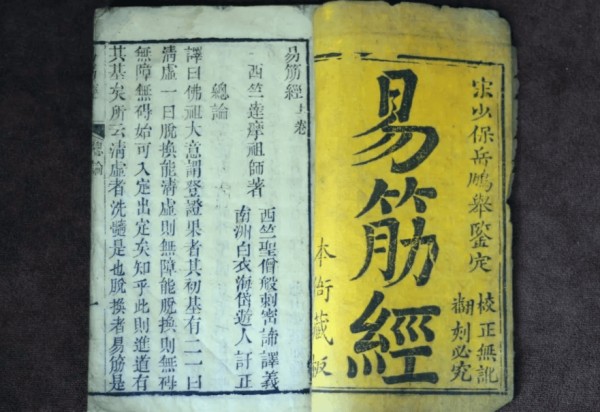 宋少保岳鵬舉鑒定
易筋經
本衙藏板
校正無訛
翻刻必究
易筋經上卷
西竺達摩祖師著
西竺聖僧般剌密諦譯義
南洲白衣海岱遊人訂正
總論
譯曰佛祖大意謂登證果者其初基有二一曰
清虛一曰脫換能清虛則無障能脫換則無碍
無障無碍始可入定出定矣知乎此則進道有
其基矣所云清虛者洗髓是也脫換者易筋是
總論